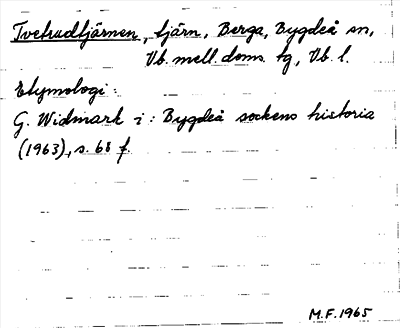 Tvetradtjärnen, tjärn, Berga, Bygdeå sn,
Vb. mell. doms. tg, Vb. l.
Etymologi:
G. Widmark i: Bygdeå sockens historia
(1963), s. 68 f.
M.F. 1965